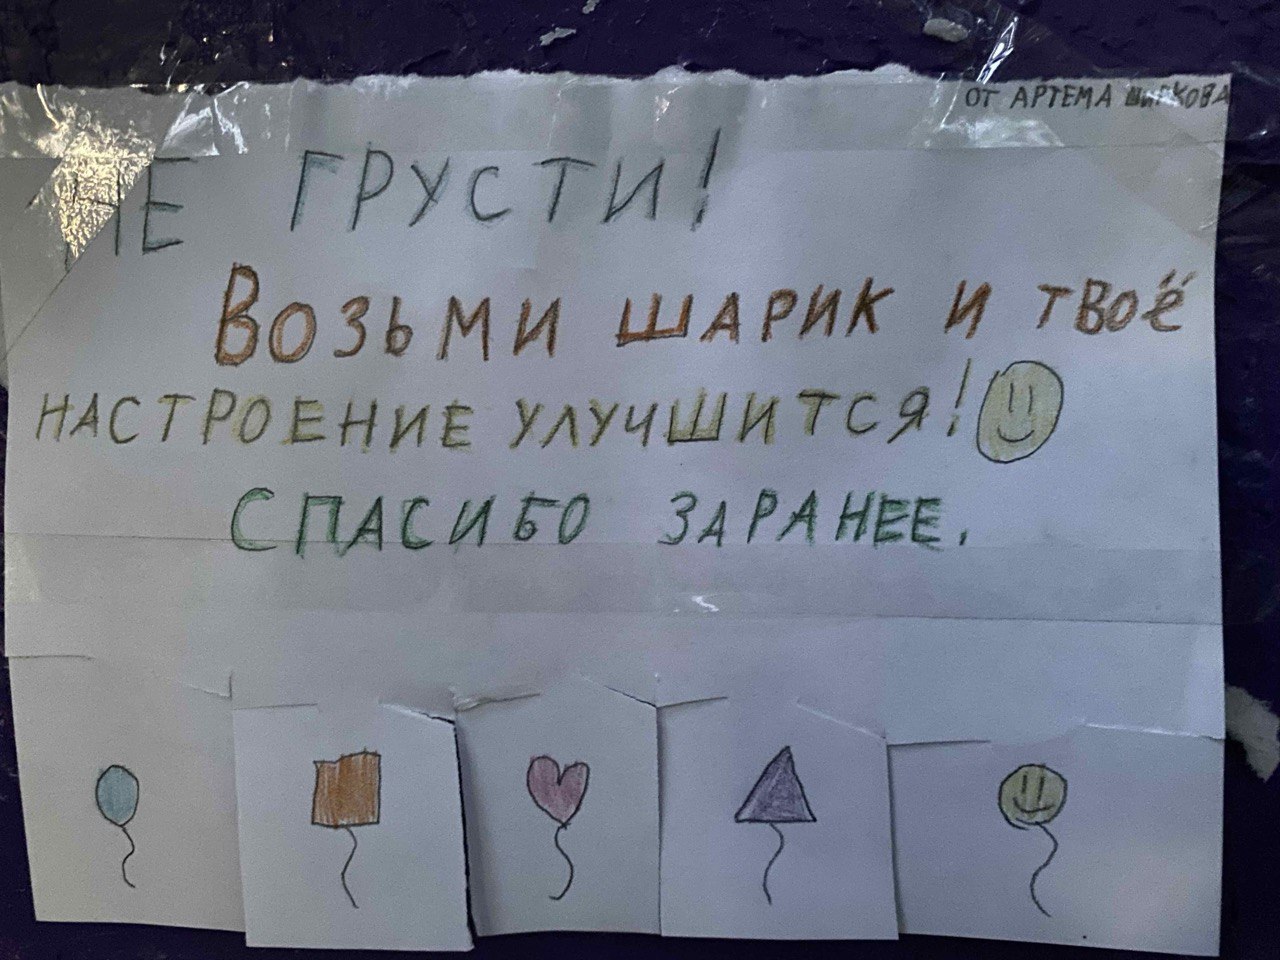 ОТ АРТЕМА ШИРКОВА
НЕ ГРУСТИ!
ВОЗЬМИ ШАРИК И ТВОЁ
НАСТРОЕНИЕ УЛУЧШИТСЯ!
СПАСИБО ЗАРАНЕЕ.